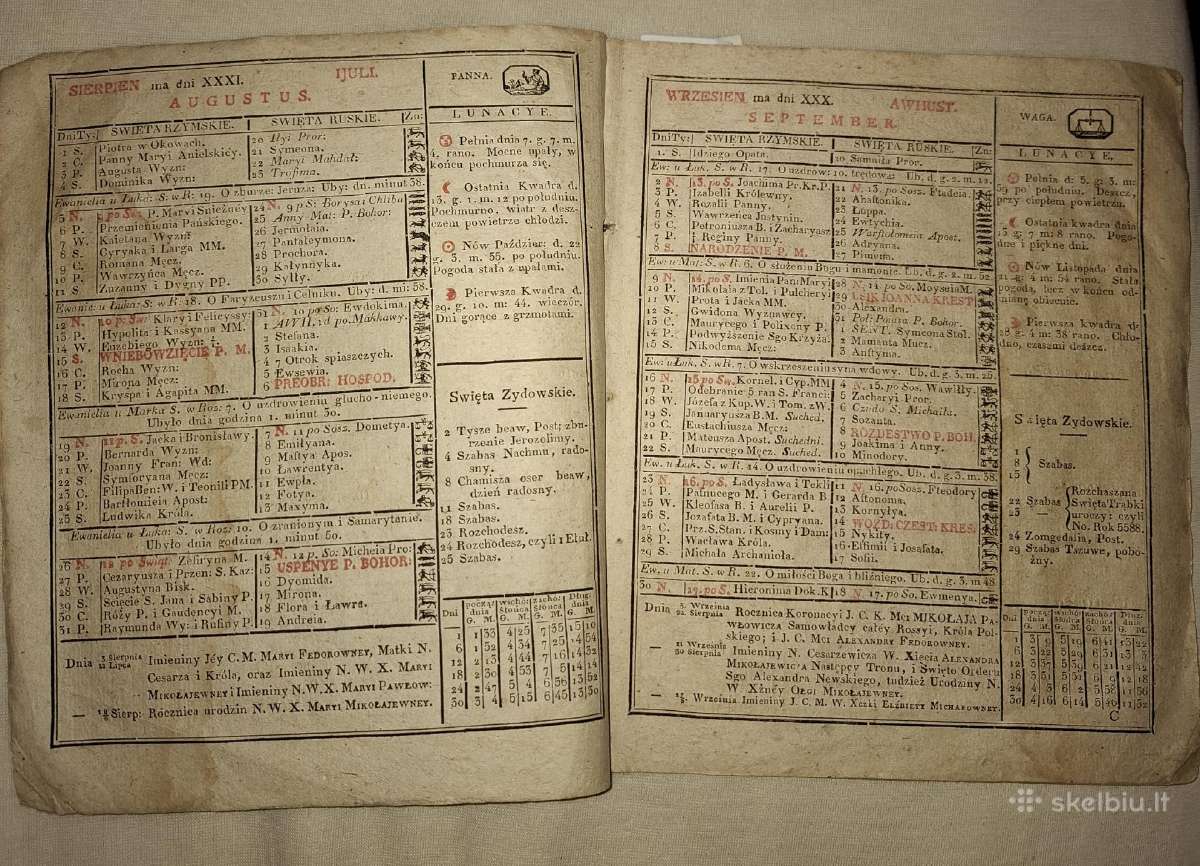 SIERPIEN ma dni XXXI. IJULI.
AUGUSTUS.
PANNA.
Dni Ty: SWIĘTA RZYMSKIE. SWIĘTA RUSKIE. Zn:
LUNACYE.
1 S. Piotra w Okowach. 20 Ilyi Pror:
2 C. Panny Maryi Anielskićy. 21 Symeona.
3 P. Augusta Wyzn: 22 Maryi Mahdał:
4 S. Dominika Wyzn: 23 Trofima.
Ewanielia u Łuka: S. w R: 19. O zburze: Jeruz: Uby: dn. minut 38.
5 N. P. Maryi Snieżney 24 N. 9 p S: Borysa i Chliba
6 P. Przemienienia Pańskiego. 25 Anny Mat: P. Bohor:
7 W. Kaietana Wyzn: 26 Jermołaia.
8 S. Cyryaka i Larga MM. 27 Pantaleymona.
9 C. Romana Męcz. 28 Prochora.
10 P. Wawrzyńca Męcz. 29 Kałynnyka.
11 S. Zuzanny i Dygny PP. 30 Syłły.
Ewanie: u Łuka: S. w R: 18. O Faryzeuszu i Celniku. Uby: d. mi: 58.
12 N. 10 p. Sw. Klary i Felicyssy: 31 N. 10 po So: Ewdokima.
13 P. Hypolita i Kassyana MM. 1 AWH. 1d po. Makkawy.
14 W. Euzebiego Wyzn: 2 Stefana.
15 S. WNIEBOWZIĘCIE P. M. 3 Isakia.
16 C. Rocha Wyzn: 4 7 Otrok spiaszczych.
17 P. Mirona Męcz: 5 Ewsewia.
18 S. Kryspa i Agapita MM. 6 PREOBR: HOSPOD.
Ewanielia u Marka S. w Roz: 7. O uzdrowieniu głucho-niemego.
Ubyło dnia godzina 1. minut 30.
19 N. 11 p. S. Jacka i Bronisławy. 7 N. 11 po Sosz. Dometya.
20 P. Bernarda Wyzn: 8 Emiłyana.
21 W. Joanny Fran: Wd: 9 Mattya Apos.
22 S. Symforyana Męcz: 10 Ławrentya.
23 C. Filipa Ben: W. i Teonili PM. 11 Ewpła.
24 P. Bartłomieia Apost: 12 Fotya.
25 S. Ludwika Króla. 13 Maxyma.
Ewanielia u Łuka: S. w Roz: 10. O zranionym i Samarytanie.
Ubyło dnia godzina 1. minut 50.
26 N. 12 po Swiąt: Zefiryna M. 14 N. 12 p. So: Micheia Pro:
27 P. Cezaryusza i Przen: S. Kaz: 15 USPENYE P. BOHOR:
28 W. Augustyna Bisk. 16 Dyomida.
29 S. Scięcie S. Jana i Sabiny P. 17 Mirona.
30 C. Róży P. i Gaudencyi M. 18 Flora i Ławra.
31 P. Raymunda Wy: i Rufiny P. 19 Andreia.
Dnia 3 Sierpnia 22 Lipca Imieniny Jéy C. M. MARYI FEDOROWNEY, Matki N.
Cesarza i Króla, oraz Imieniny N. W. X. MARYI
MIKOŁAJEWNEY i Imieniny N.W.X. MARYI PAWŁOW:
— 18/6 Sierp: Rocznica urodzin N. W. X. MARYI MIKOŁAJEWNEY.
Pełnia dnia 7. g. 7. m.
4. rano. Mocne upały, w
końcu pochmurza się.
Ostatnia Kwadra d.
13. g. 1. m. 12 po południu.
Pochmurno, wiatr z desz-
czem powietrze chłodzi.
Nów Paździer: d. 22
g. 3. m. 55. po południu.
Pogoda stała z upałami.
Pierwsza Kwadra d.
29. g. 10. m. 44. wieczór.
Dni gorące z grzmotami.
Swięta Zydowskie.
2 Tysze beaw, Post; zbu-
rzenie Jerozolimy.
4 Szabas Nachmu, rado-
sny.
8 Chamisza oser beaw,
dzień radosny.
11 Szabas.
18 Szabas.
23 Rozchodesz.
24 Rozchodesz, czyli 1 Elul.
25 Szabas.
Dni począt: dnia G. M. wschó: słońca G. M. zachó: słońca G. M. Dług: dnia G. M.
WRZESIEN ma dni XXX. AWHUST.
SEPTEMBER.
WAGA.
Dni Ty: SWIĘTA RZYMSKIE. SWIĘTA RUSKIE. Zn:
LUNACYE.
1. S. Idziego Opata. 20 Samuiła Pror.
Ew: u Łuk. S. w R. 17. O uzdrow: 10. trędowa: Ub. d. g. 2. m. 12.
2 N. 13. po S. Joachima Pr. Kr. P. 21 N. 13. po Sosz. Ftadeia.
3 P. Izabelli Królewny. 22 Ahaftonika.
4 W. Rozalii Panny. 23 Łuppa.
5 S. Wawrzeńca Justynin. 24 Ewtychia.
6 C. Petroniusza B. i Zacharyasz 25 Warftołomeia Apost.
7 P. i Reginy Panny. 26 Adryana.
8 S. NARODZENIE P. M. 27 Pimena.
Ew: u Mat: S. w R. 6. O słożeniu Bogu i mamonie. Ub. d. g. 2. m. 52
9 N. 14. po S. Imienia Pan: Maryi 28 N. 14. po Sos. Moyseia M.
10 P. Mikołaia z Tol. i Pulchery 29 JOANNA KREST
11 W. Prota i Jacka MM. 30 Alexandra.
12 S. Gwidona Wyznawcy. 31 Poł: Poiasa P. Bohor.
13 C. Maurycego i Polixony P. 1 SENT. Symeona Stol.
14 P. Podwyższenie Sgo Krzyża. 2 Mamanta Mucz.
15 S. Nikodema Męcz: 3 Anftyma.
Ew: u Łuk. S. w R. 7. O wskrzeszeniu syna wdowy. Ub. d. g. 3. m. 26.
16 N. 15 po Sw. Kornel. i Cyp. MM 4 N. 15. po Sos. Wawiłły.
17 P. Odebranie 5 ran S. Franci: 5 Zacharyi Pror.
18 W. Józefa z Kup. W. i Tom. z W. 6 Czudo S. Michaiła:
19 S. Januaryusza B. M. Suched. 7 Sozanta.
20 C. Eustachiusza Męcz: 8 ROZDESTWO P. BOH.
21 P. Mateusza Apost. Suchedni. 9 Joakima i Anny.
22 S. Maurycego Męcz. Suched. 10 Minodory.
Ew. u Łuk. S. w R. 14. O uzdrowieniu opuchłego. Ub. d. g. 3. m. 38.
23 N. 16. po S. Ładysława i Tekli 11 N. 16. po Sosz. Fteodory
24 P. Pafnucego M. i Gerarda B 12 Aftonoma.
25 W. Kleofasa B. i Aurelii P. 13 Kornyłya.
26 S. Jozafata B. M. i Cypryana. 14 WOZD: CZEST: KRES.
27 C. Prz. S. Stan. i Kosmy i Dam: 15 Nykity.
28 P. Wacława Króla. 16 Effimii i Josafata.
29 S. Michała Archanioła. 17 Sofii.
Ew. u Mat. S. w R. 22. O miłości Boga i bliźniego. Ub. d. g. 3. m 48
30 N. 17. po S. Hieronima Dok. K 18 N. 17. po So. Ewmenya.
Dnia 3. Września 22. Sierpnia Rocznica Koronacyi J. C. K. Mci MIKOŁAJA PA-
WŁOWICZA Samowładcy całéy Rossyi, Króla Pol-
skiego; i J. C. Mci ALEXANDRY FEDOROWNEY.
— 11 Września 30 Sierpnia Imieniny N. Cesarzewicza W. Xięcia ALEXANDRA
MIKOŁAJEWICZA Następcy Tronu, i Swięto Orderu
Sgo Alexandra Newskiego, tudzież Urodziny N.
W. Xżnéy OLGI MIKOŁAJEWNEY.
Września Imieniny J. C. M. W. Xczki ELŻBIETY MICHAROWNEY.
Pełnia d: 5. g: 3. m:
59 po południu. Deszcz,
przy ciepłem powietrzu.
Ostatnia kwadra dnia
13 g: 7 m: 8 rano. Pogo-
dne i piękne dni.
Nów Listopada dnia
21 g: 4 m: 54 rano. Stała
pogoda, lecz w końcu od-
miane obiecuie.
Pierwsza kwadra d:
28 g: 4 m: 38 rano. Chło-
dno, czasami deszcz.
Swięta Zydowskie.
1
8 Szabas.
15
22 Szabas Rozchaszana
23 — Swięta Trąbki
uroczy: czyli
No. Rok 5588.
24 Zomgedalia, Post.
29 Szabas Tszuwe, pobo-
żny.
Dni począt: dnia G. M. wschó: słońca G. M. zachó: słońca G. M. Dłu: dnia G. M.
C
skelbiu.lt